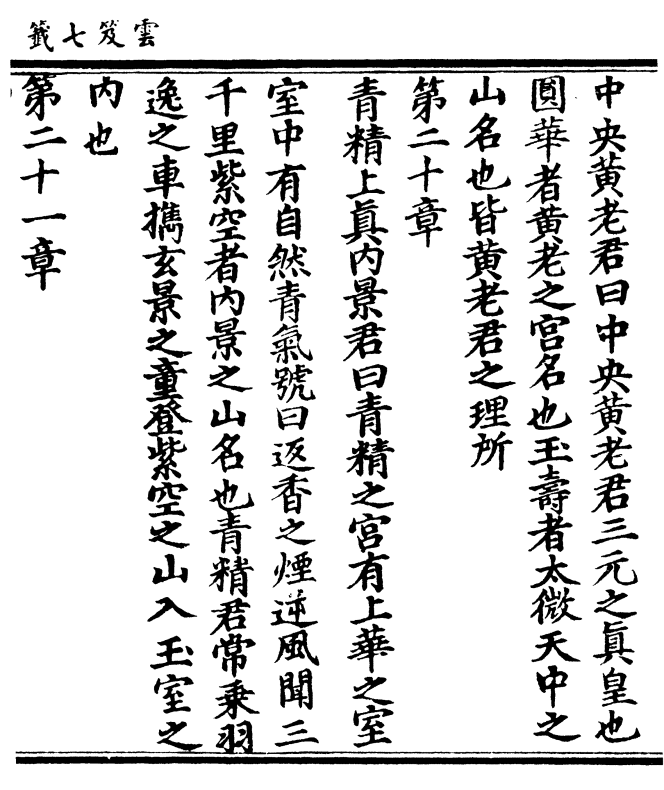 雲笈七籤
中央黃老君曰中央黃老君三元之眞皇也
圓華者黃老之宮名也玉壽者太微天中之
山名也皆黃老君之理所
第二十章
青精上眞內景君曰青精之宮有上華之室
室中有自然青氣號曰返香之煙逆風聞三
千里紫空者內景之山名也青精君常乘羽
逸之車攜玄景之童登紫空之山入玉室之
內也
第二十一章